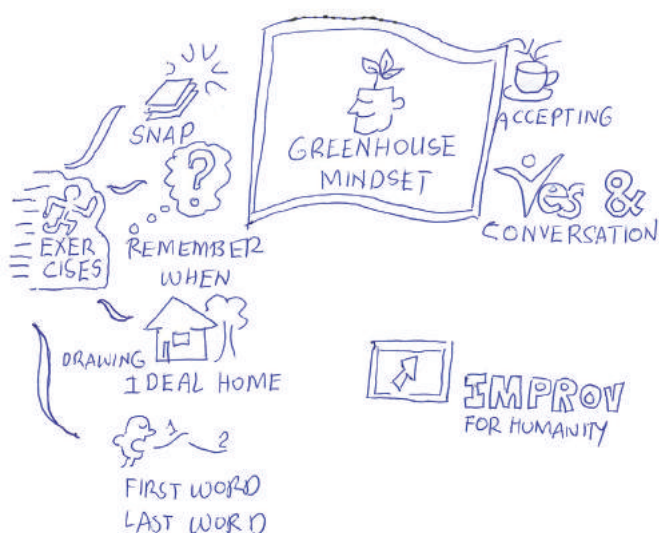 GREENHOUSE
MINDSET
ACCEPTING
Yes &
CONVERSATION
EXER
CISES
SNAP
?
REMEMBER
WHEN
DRAWING
IDEAL HOME
1
2
FIRST WORD
LAST WORD
IMPROV
FOR HUMANITY